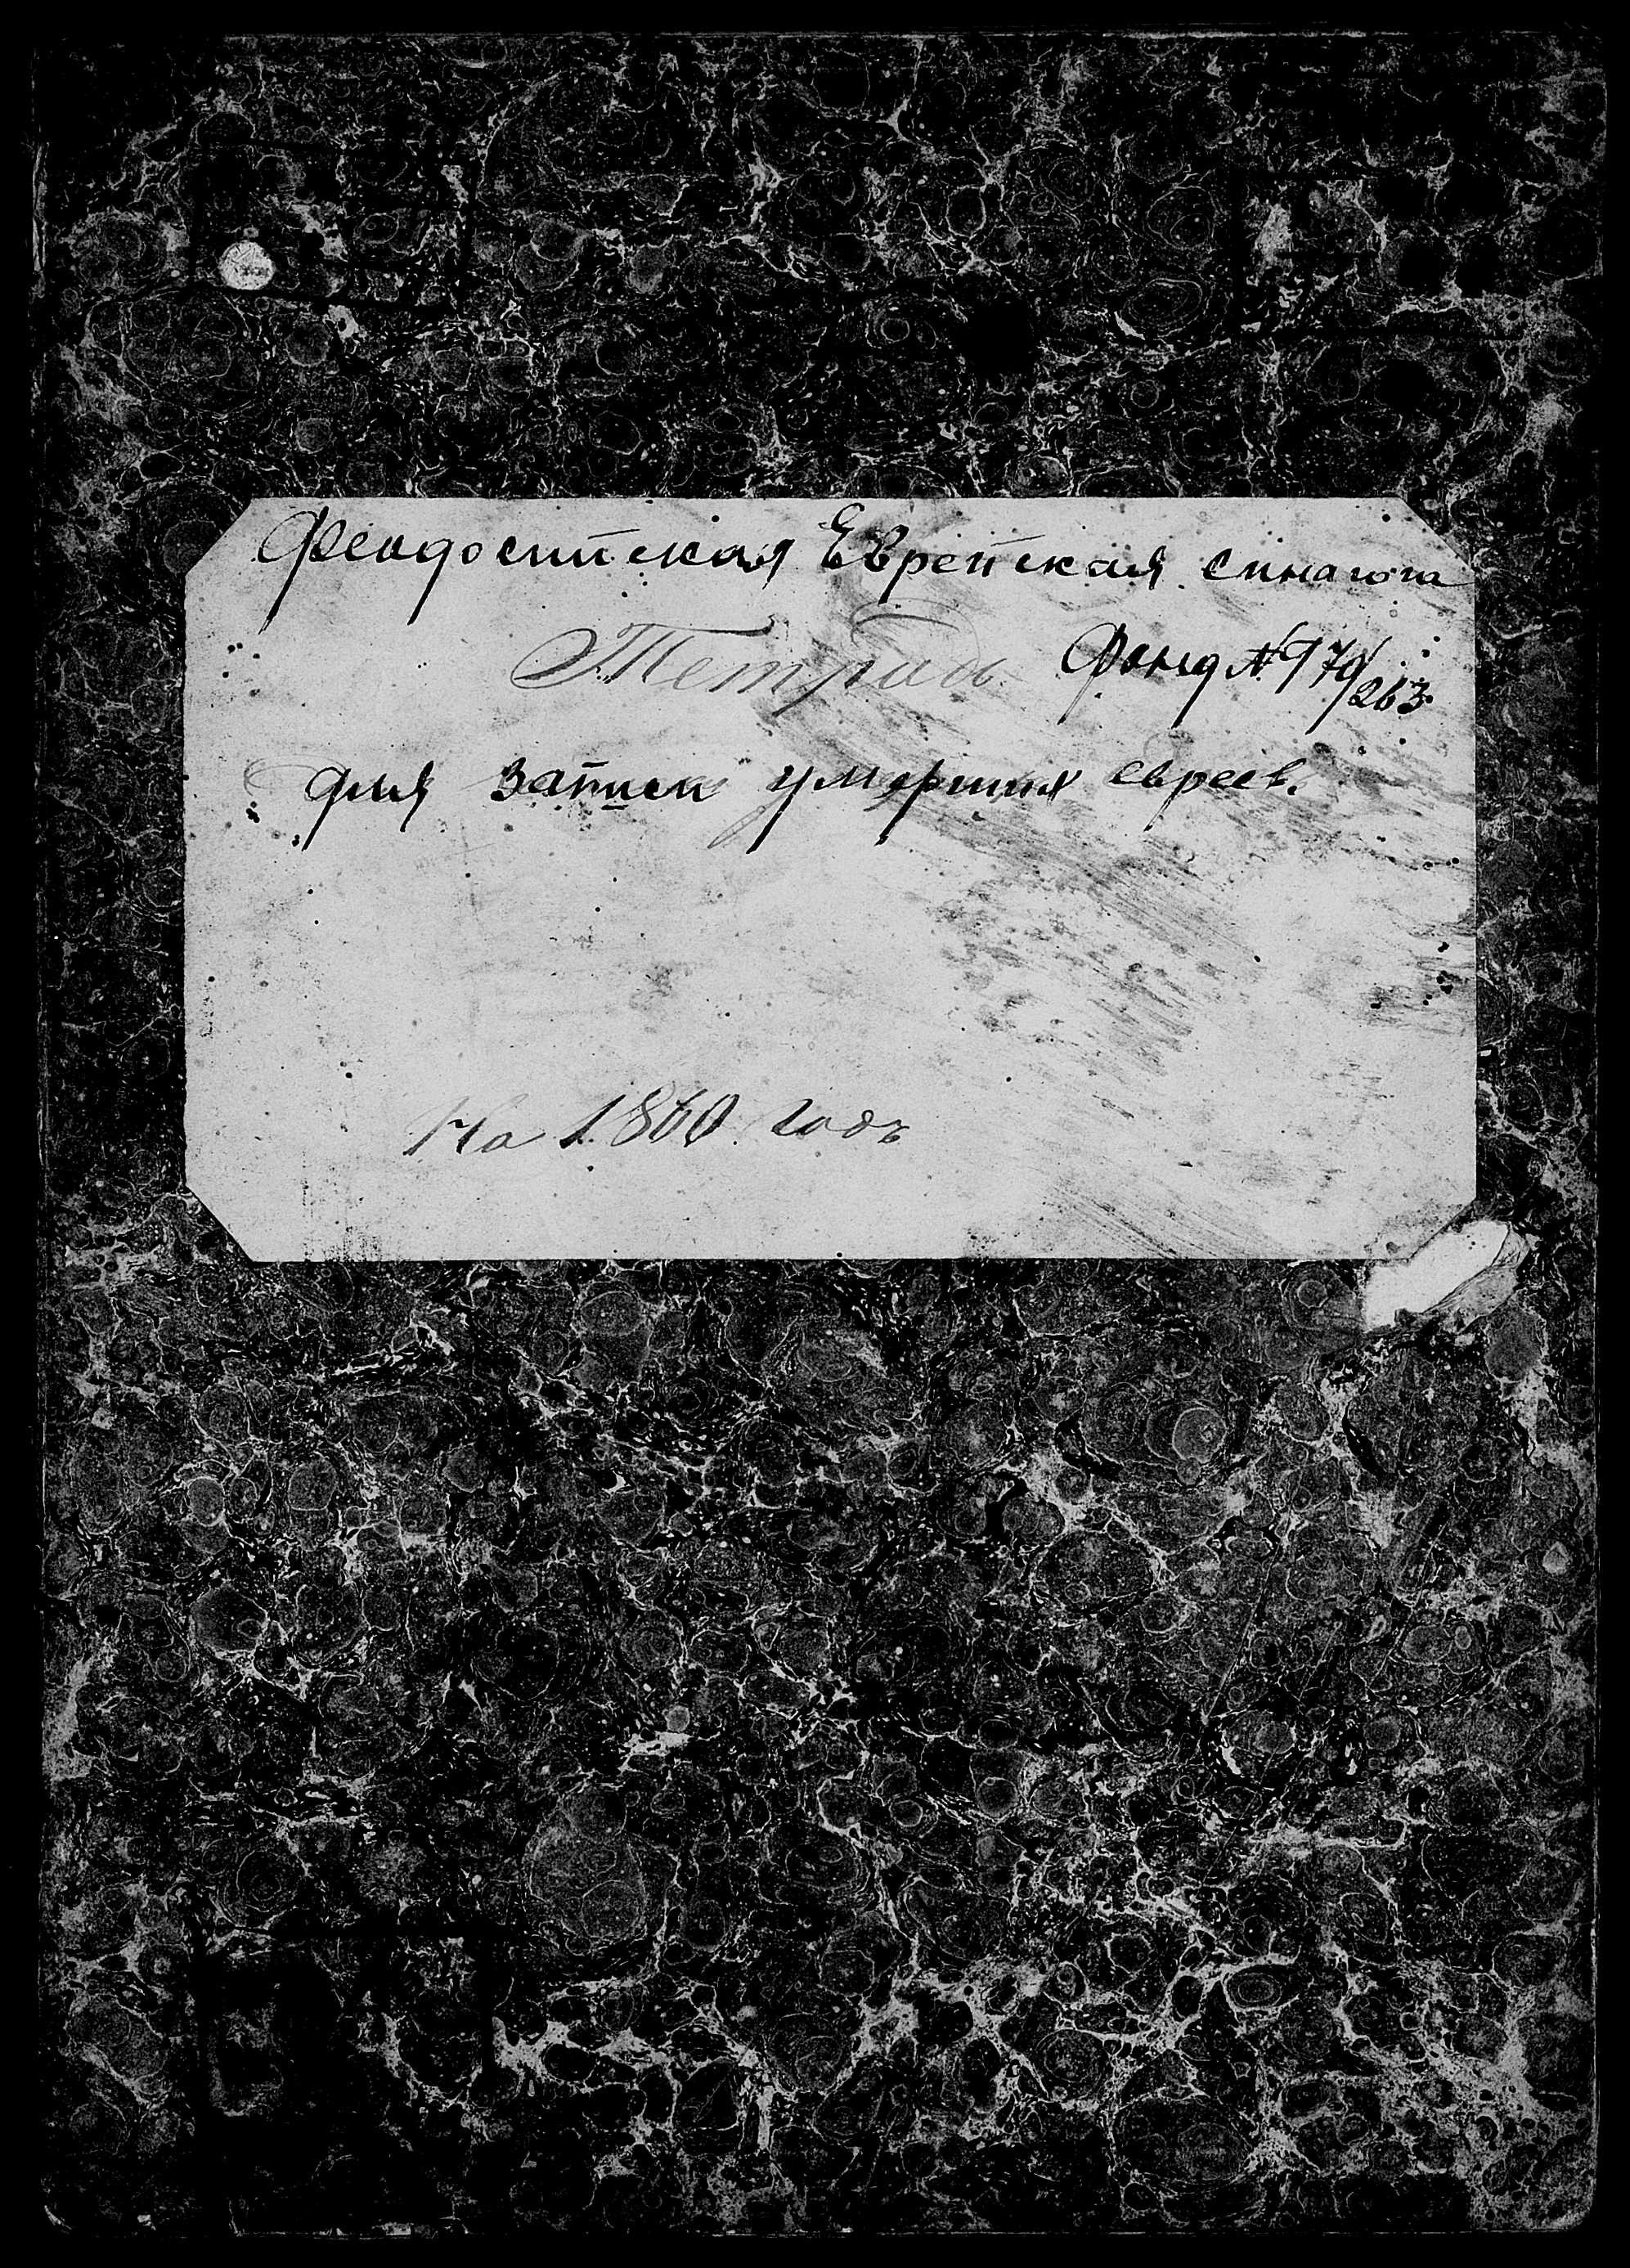 Феодосийская Еврейская синагога
Тетрадь Фонд №
для записи умерших евреев.
На 1860 годъ